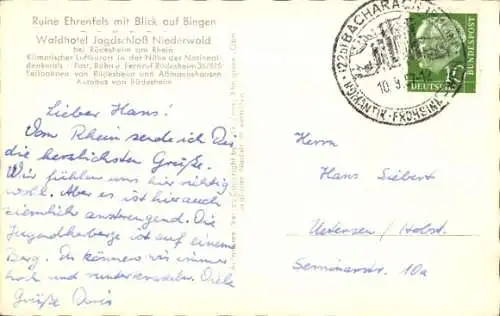 Ruine Ehrenfels mit Blick auf Bingen
Waldhotel Jagdschloß Niederwald
bei Rüdesheim am Rhein
Klimatischer Luftkurort in der Nähe des National-
denkmals - Post, Bahn u. Fernruf Rüdesheim
Seilbahnen von Rüdesheim und Aßmannshausen
Autobus von Rüdesheim
Lieber Hans!
Vom Rhein sende ich Dir
die herzlichsten Grüße.
Wir fühlen uns hier richtig
wohl. Aber es ist hier auch
ziemlich anstrengend. Die
Jugendherberge ist auf einem
Berg. Da können wir immer
hoch und runter Viele
Grüße Doris
(22b) BACHARACH
10.9.
ROMANTIK - FRÖHLICHE
10
DEUTSCHE BUNDESPOST
Herrn
Hans Siebert
Uetersen/Holst.
Seminarstr. 10a